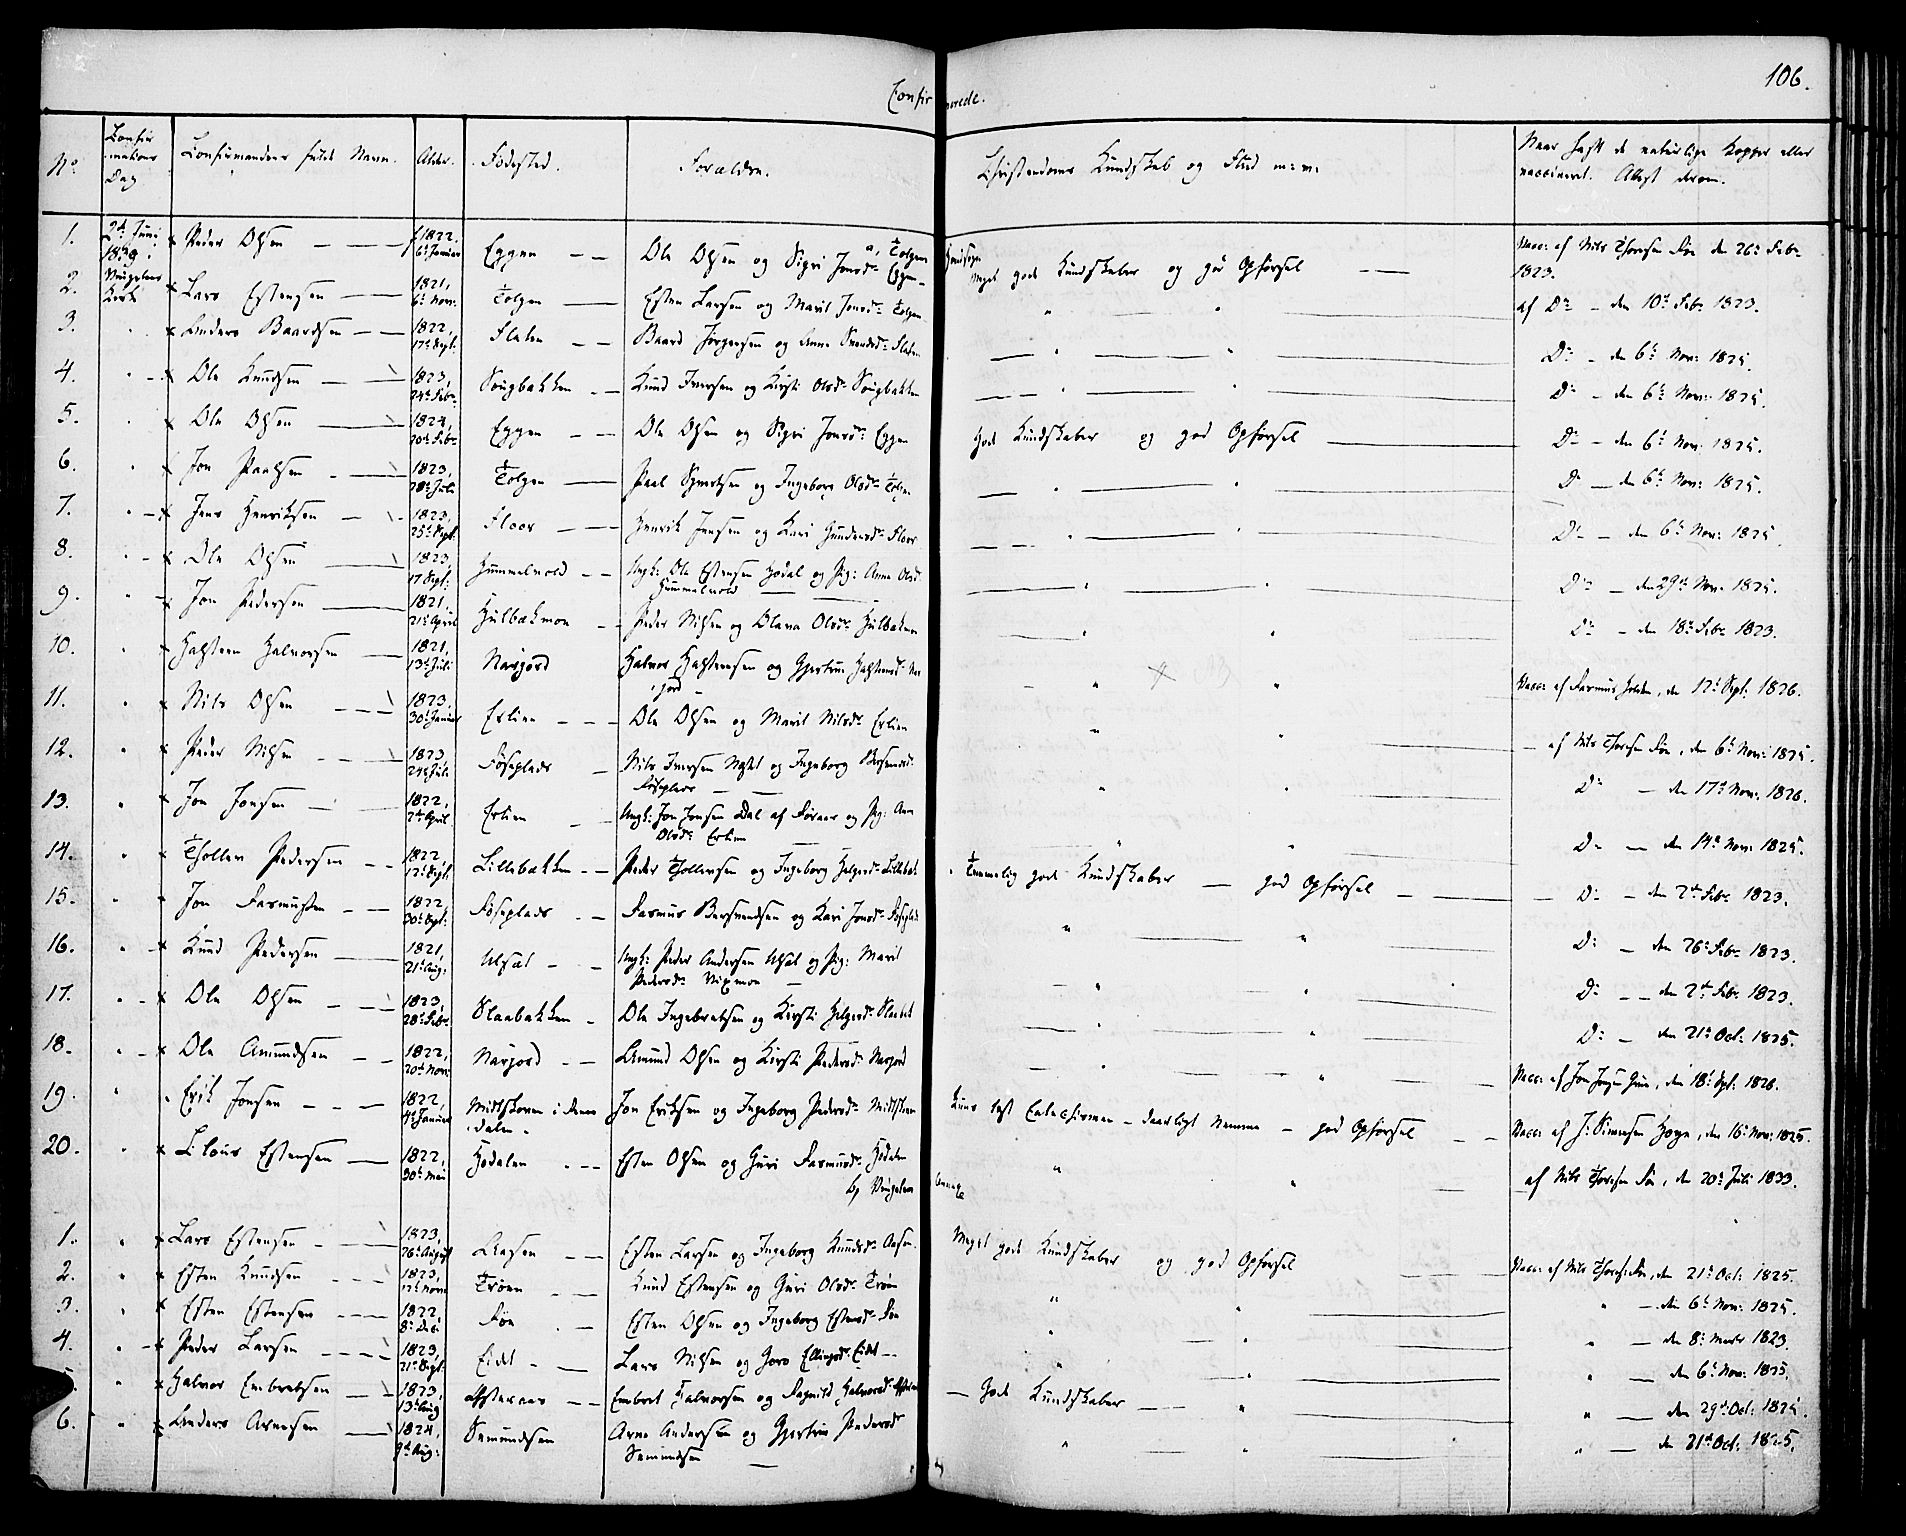 Confirmerede.
106.
No | Confirmations Dag | Confirmandens fulde Navn. | Alder. | Fødested. | Forældre. | Christendoms Kundskab og Flid m: v: | Naar haft de naturlige Kopper eller vaccineret. Attest derom.
a, Tolgen Hovedsogn
1. | 2d Juni 1839. Vingelens Kirke | Peder Olsen | 1822. 6t Januar | Eggen | Ole Olsen og Sigri Jonsd: Eggen | Meget gode Kundskaber og god Opførsel | Vacc: af Nils Thoresen Foe den 26: Febr: 1823.
2. | " | Lars Estensen | 1821, 6t Nov: | Tolgen | Esten Larsen og Marit Jonsd: Tolgen | " " | af Do – den 10t Febr: 1823.
3. | " | Anders Baardsen | 1822, 17t Sept: | Flaten | Baard Jørgensen og Anne Svendsd: Flaten | " " | Do – den 6t Nov: 1825.
4. | " | Ole Knudsen | 1823, 24t Febr: | Sougbakken | Knud Iversen og Kirsti Olsd: Sougbakken | " " | Do – den 6t Nov: 1825.
5. | " | Ole Olsen | 1824, 20d Febr: | Eggen | Ole Olsen og Sigri Jonsd: Eggen | Gode Kundskaber og god Opførsel | Do – den 6t Nov: 1825.
6. | " | Jon Paalsen | 1823, 28t Juli | Tolgen | Paal Sjvertsen og Ingeborg Olsd: Tolgen | " " | Do – den 6t Nov: 1825.
7. | " | Jens Henriksen | 1823, 25t Sept: | Floor | Henrik Jensen og Kari Gundersd: Floor | " " | Do – den 6t Nov: 1825.
8. | " | Ole Olsen | 1823, 17 Sept: | Hummelvold | Ungk: Ole Estensen Hodal og Pig: Anne Olsd: Hummelvold | " " | Do – den 29d Nov: 1825.
9. | " | Jon Pedersen | 1821. 21t April | Hulbækmoe | Peder Nilsen og Olava Olsd: Hulbækmoe | " " | Do – den 18t Febr: 1823.
10. | " | Halsteen Halvorsen | 1821, 13t Juli | Narjord | Halvor Halsteensen og Gjertrue Halsteensd: Narjord | " " | Vacc: af Rasmus Holden, den 12t Sept: 1826.
11. | " | Nils Olsen | 1823, 30t Januar | Erlien | Ole Olsen og Marit Nilsd: Erlien | " " | – af Nils Thoresen Foe, den 6t Nov: 1825.
12. | " | Peder Nilsen | 1823, 24d Juli | Foseplads | Nils Iversen og Ingeborg Bersvendsd: Foseplads | " " | Do – den 17d Nov: 1826.
13. | " | Jon Jonsen | 1822, 2den April | Erlien | Ungk: Jon Jonsen Dal af Foraar og Pig: Ane Olsd: Erlien | " " | Do – den 14d Nov: 1825.
14. | " | Thollev Pedersen | 1822, 12t Sept: | Lillebækken | Peder Thollevsen og Ingeborg Helgesd: Lillebæk | Temmelig gode Kundskaber – god Opførsel | – Do – den 2d Febr: 1823.
15. | " | Jon Rasmussen | 1822, 30t Sept: | Foseplads | Rasmus Bersvendsen og Kari Jonsd: Foseplads | " " | Do – den 26t Febr: 1823.
16. | " | Knud Pedersen | 1821, 21t Aug: | Ulsæt | Ungk: Peder Andersen Ulsæt og Pig: Marit Pedersd: Vigmoe | " " | Do – den 2d Febr: 1823.
17. | " | Ole Olsen | 1823, 28t Febr: | Slaabækken | Ole Ingebretsen og Kirsti Helgesd: Slaabæk | " " | Do – den 21t Oct: 1825.
18. | " | Ole Amundsen | 1822, 20d Nov: | Narjord | Amund Olsen og Kirsti Pedersd: Narjord | " " | Vacc: af Jon Joh: Huus, den 18t Sept: 1826.
19. | " | Erik Jonsen | 1822, 4d Januar | Midtskoven i Dalen | Jon Eriksen og Ingeborg Pedersd: Midtskov | Kuns læst Catechismen – daarligt Nemme – god Opførsel | Vacc: af J: Simensen Hoye, den 16t Nov: 1825.
20. | " | Clous Estensen | 1822, 30t Mai | Hodalen | Esten Olsen og Guri Rasmusd: Hodalen | " " | – af Nils Thoresen Foe, den 20d Juli 1833.
b, Vingelens Annexe
1. | " | Lars Estensen | 1823, 26d August | Aasen | Esten Larsen og Ingeborg Knudsd: Aasen | Meget gode Kundskaber og god Opførsel | Vacc: af Nils Thores: Foe, den 21t Oct: 1825.
2. | " | Esten Knudsen | 1823, 12t Nov: | Trøen | Knud Estensen og Guri Olsd: Trøen | " " | " – den 6t Nov: 1825.
3. | " | Esten Estensen | 1822, 8: Dec: | Foe | Esten Olsen og Ingeborg Estensd: Foe | " " | " – den 8: Marts 1823.
4. | " | Peder Larsen | 1823, 21t Sept: | Eidet | Lars Nilsen og Goro Ellingsd: Eidet | " " | " – den 6t Nov: 1825.
" | Halvor Embretsen | 1823, 13t Aug | Usteraas | Embret Halvorsen og Ragnild Halvorsd: | – Gode Kundskaber – " | " – den 29d Oct: 1825.
6. | " | Anders Arnesen | 1824, 9d Aug: | Semundsen | Arne Andersen og Gjertrue Pedersd: Semundsen | " " | " – den 21t Oct: 1825.